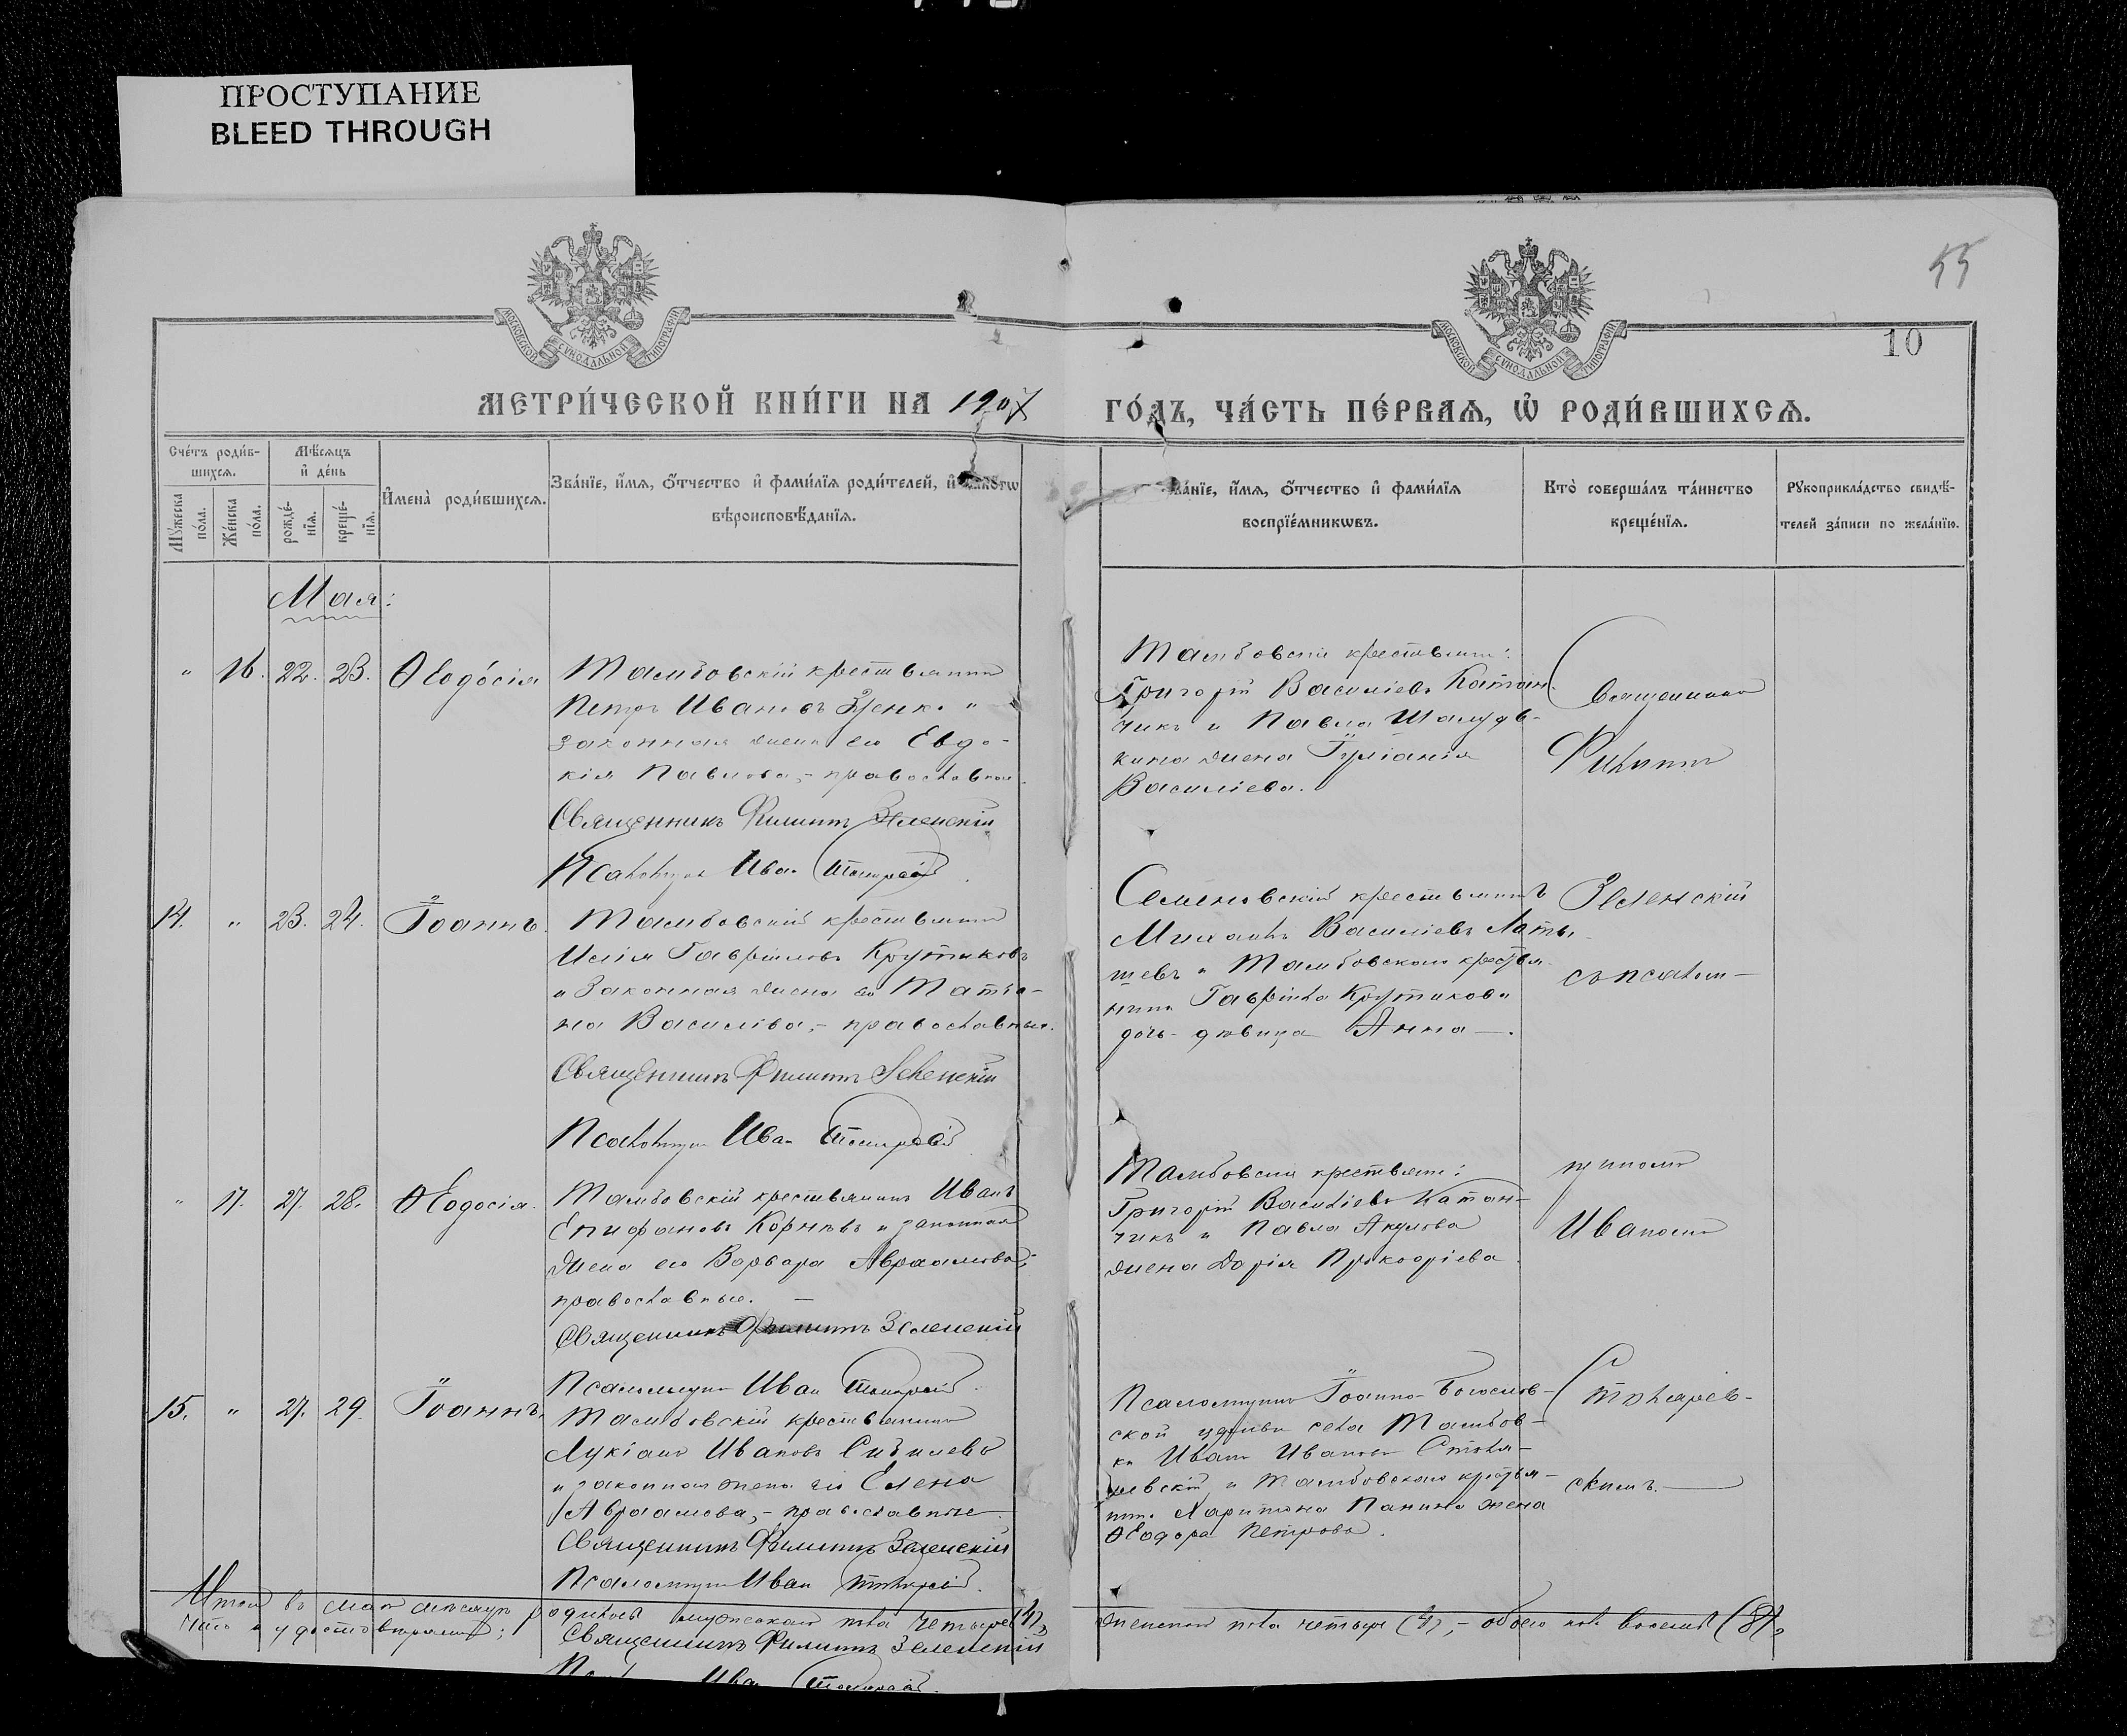 ПРОСТУПАНИЕ
BLEED THROUGH
55
10
МОСКОВСКОЙ СѴНОДАЛЬНОЙ ТИПОГРАФІИ
МОСКОВСКОЙ СѴНОДАЛЬНОЙ ТИПОГРАФІИ
МЕТРИ́ЧЕСКОЙ КНИ́ГИ НА 1907
ГО́ДЪ, ЧА́СТЬ ПЕ́РВАѦ, Ѡ҆ РОДИ́ВШИХСѦ.
Сче́тъ роди́в-
шихсѧ.
Мѣ́сѧцъ
и҆ де́нь
Мꙋ́жеска
по́ла.
Же́нска
по́ла.
рожде́-
нїѧ.
креще́-
нїѧ.
И҆мена̀ роди́вшихсѧ.
Зва́нїе, и҆́мѧ, ѻ҆́тчество и҆ фами́лїѧ роди́телей, и҆ како́гѡ
вѣроисповѣ́данїѧ.
Зва́нїе, и҆́мѧ, ѻ҆́тчество и҆ фами́лїѧ
воспрїе́мникѡвъ.
Кто̀ соверша́лъ та́инство
креще́нїѧ.
Рꙋкоприкла́дство свидѣ́-
телей за́писи по жела́нїю.
Мая:
" 16. 22. 23. Ѳеодо́сія
Тамбовскій крестьянинъ
Петръ Ивановъ и
законная жена его Евдо-
кія Павлова,- православные.
Священникъ Филиппъ Зеленскій
Псаломщикъ Иванъ Столяревскій
Тамбовскіе крестьяне:
Григорій Васильевъ Катан-
чикъ и Павла
жена Іуліанія
Васильева.
Священникъ
Филиппъ
14. " 23. 24. Іоаннъ.
Тамбовскій крестьянинъ
Илія Гавріиловъ Крутиковъ
и законная жена его Матро-
на Васильева,- православные.
Священникъ Филиппъ Зеленскій
Псаломщикъ Иванъ Столяревскій
Семеновскій крестьянинъ
Михаилъ Васильевъ Латы-
шевъ и Тамбовскаго крестья-
нина Гавріила Крутикова
дочь- девица Анна-.
Зеленскій
съ псалом-
" 17. 27. 28. Ѳеодосія.
Тамбовскій крестьянинъ Иванъ
Епифановъ Корнѣвъ и законная
жена его Варвара Авраамова,-
православные. -
Священникъ Филиппъ Зеленскій
Псаломщикъ Иванъ Столяревскій.
Тамбовскіе крестьяне:
Григорій Васильевъ Катан-
чикъ и Павла Акулова
жена Дарія Прокофіева.
щикомъ
Иваномъ
15. " 27. 29. Іоаннъ.
Тамбовскій крестьянинъ
Лукіанъ Ивановъ
и законная жена его Елена
Авраамова,- православные.
Священникъ Филиппъ Зеленскій
Псаломщикъ Иванъ Столяревскій.
Псаломщикъ Іоанно-Богослов-
ской церкви села Тамбов-
ки Иванъ Ивановъ Столя-
ревскій и Тамбовскаго крестья-
нина Харитона Панина жена
Ѳеодора Петрова.
Столярев-
скимъ.-
Итого въ маѣ мѣсяцѣ родилось мужскаго пола четыре (4),
женскаго пола четыре (4),- обоего пола восемь (8),
что и удостовѣряемъ;
Священникъ Филиппъ Зеленскій
Псаломщикъ Иванъ Столяревскій.